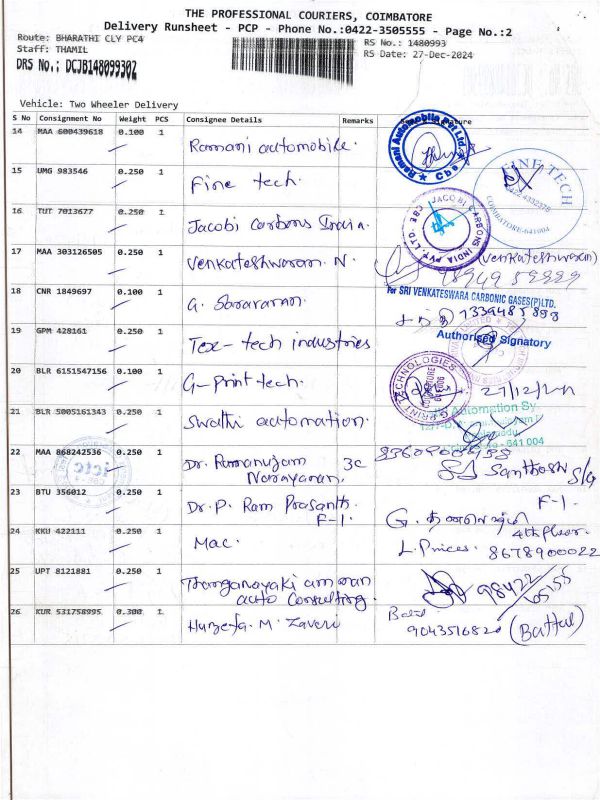 THE PROFESSIONAL COURIERS, COIMBATORE
Delivery Runsheet - PCP - Phone No.:0422-3505555 - Page No.:2
Route: BHARATHI CLY PC4
RS No.: 1480993
Staff: THAMIL
RS Date: 27-Dec-2024
DRS No.: DCJB148099302
Vehicle: Two Wheeler Delivery
S No Consignment No Weight PCS Consignee Details Remarks Signature
14 MAA 600439618 0.100 1 Ramani automobile.
Ramani Automobile Pvt Ltd. Cbe
15 UMG 983546 0.250 1 Fine tech.
FINE TECH
COIMBATORE-641004
16 TUT 7013677 0.250 1 Jacobi Carbons India.
JACOBI CARBONS INDIA PVT. LTD. CBE
17 MAA 303126505 0.250 1 Venkateshwaran. N. (Venkateshwaran)
18 CNR 1849697 0.100 1 G. Saravanan.
For SRI VENKATESWARA CARBONIC GASES(P)LTD.
Authorised Signatory
19 GPM 428161 0.250 1 Tex-tech industries
20 BLR 6151547156 0.100 1 G-Print tech.
G PRINT TECHNOLOGIES
21 BLR 5005161343 0.250 1 Swathi automation.
Automation Sy
641 004
22 MAA 868242536 0.250 1 Dr. Ramanujam 3C
Narayanan. Santhosh S/G
23 BTU 356012 0.250 1 Dr. P. Ram Prasanth. F-1.
F-1.
24 KKU 422111 0.250 1 Mac. 4th floor.
8678900022
25 UPT 8121881 0.250 1 Thanganayaki amman 98422
auto Consulting.
26 KUR 531758995 0.300 1 Huzefa. M. Zaveri (Battul)